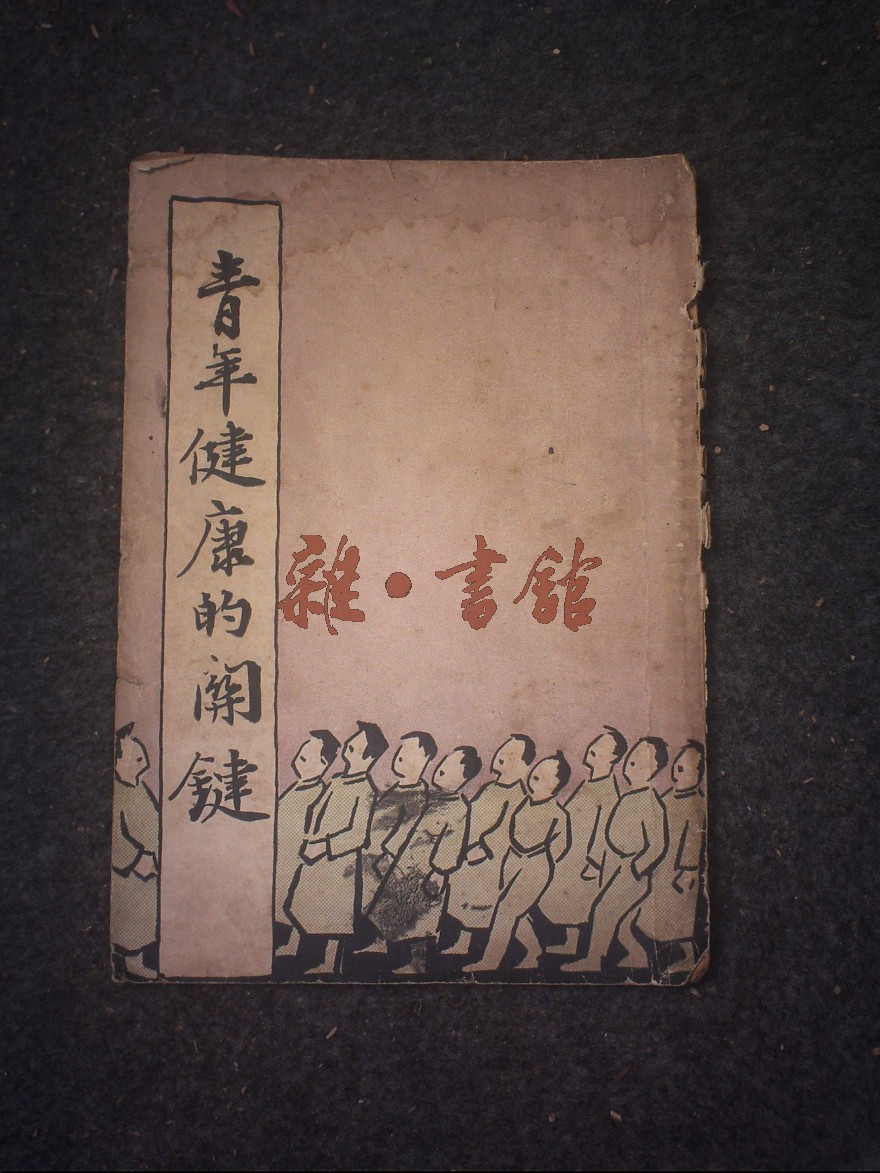 青年健康的關鍵
雜·書館